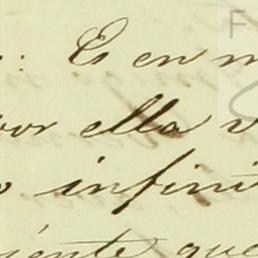 : Es en m
por ella v
o infini
iente que